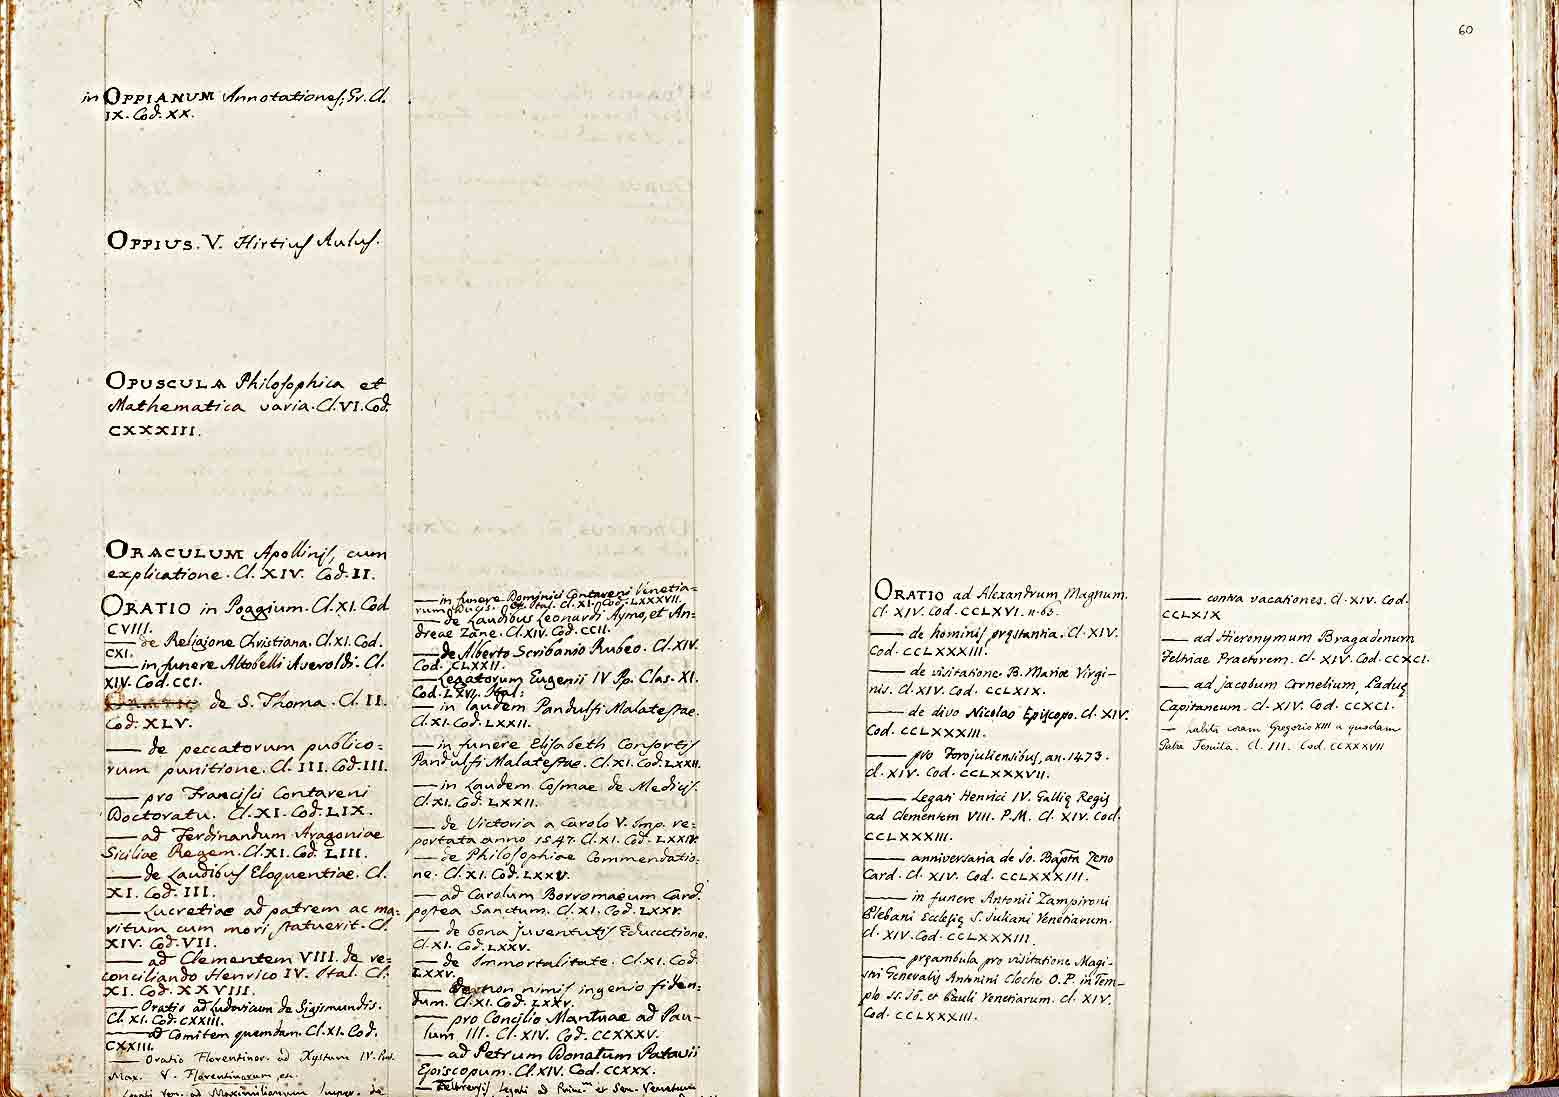 in OPPIANUM Annotationes; Gr. Cl.
IX. Cod. XX.
OPPIUS. V. Hirtius Aulus.
OPUSCULA Philosophica et
Mathematica varia. Cl. VI. Cod.
CXXXIII.
ORACULUM Apollinis, cum
explicatione. Cl. XIV. Cod. II.
ORATIO in Poggium. Cl. XI. Cod
CVIII.
— de Religione Christiana. Cl. XI. Cod.
CXI.
— in funere Altobelli Averoldi. Cl.
XIV. Cod. CCI.
de S. Thoma. Cl. II.
Cod. XLV.
— de peccatorum publico=
rum punitione. Cl. III. Cod. III.
— pro Francisci Contareni
Doctoratu. Cl. XI. Cod. LIX.
— ad Ferdinandum Aragoniae
Siciliae Regem. Cl. XI. Cod. LIII.
— de Laudibus Eloquentiae. Cl.
XI. Cod. III.
— Lucretiae ad patrem ac ma=
ritum cum mori statuerit. Cl.
XIV. Cod. VII.
— ad Clementem VIII. de re=
conciliando Henrico IV. Ital. Cl.
XI. Cod. XXVIII.
— Oratio ad Ludovicum de Sigismundis.
Cl. XI. Cod. CXXIII.
— ad Comitem quemdam. Cl. XI. Cod.
CXXIII.
— Oratio Florentinor. ad Xystum IV. Pont.
Max. V. Florentinorum
Legati Ven. ad Maximilianum Imper. de
— in funere Dominici Contareni Venetia=
rum Ducis. Ital. Cl. XI. Cod. LXXXVII.
— de Laudibus Leonardi Aymo, et An=
dreae Zane. Cl. XIV. Cod. CCII.
— de Alberto Scribanio Rubeo. Cl. XIV.
Cod. CLXXII.
— Legatorum Eugenii IV Pp. Clas. XI.
Cod. LXVI. Ital:
— in laudem Pandulfi Malatestae.
Cl. XI. Cod. LXXII.
— in funere Elisabeth Consortis
Pandulfi Malatestae. Cl. XI. Cod. LXXII.
— in Laudem Cosmae de Medicis.
Cl. XI. Cod. LXXII.
— de Victoria a Carolo V. Imp. re=
portata anno 1547. Cl. XI. Cod. LXXIV.
— de Philosophiae Commendatio=
ne. Cl. XI. Cod. LXXV.
— ad Carolum Borromaeum Card.
postea Sanctum. Cl. XI. Cod. LXXV.
— de bona juventutis Educatione.
Cl. XI. Cod. LXXV.
— de Immortalitate. Cl. XI. Cod.
LXXV.
— non nimis ingenio fiden=
dum. Cl. XI. Cod. LXXV.
— pro Concilio Mantuae ad Pau=
lum III. Cl. XIV. Cod. CCXXXV.
— ad Petrum Donatum Patavii
Episcopum. Cl. XIV. Cod. CCXXX.
— Feltrensis Legati ad Princ. et Sen. Venetum
60
ORATIO ad Alexandrum Magnum.
Cl. XIV. Cod. CCLXVI. n. 63.
— de hominis pręstantia. Cl. XIV.
Cod. CCLXXXIII.
— de visitatione B. Mariæ Virgi=
nis. Cl. XIV. Cod. CCLXIX.
— de divo Nicolao Episcopo. Cl. XIV.
Cod. CCLXXXIII.
— pro Forojuliensibus, an. 1473.
Cl. XIV. Cod. CCLXXXVII.
— Legati Henrici IV. Gallię Regis
ad Clementem VIII. P.M. Cl. XIV. Cod.
CCLXXXIII.
— anniversaria de Jo. Bapta Zeno
Card. Cl. XIV. Cod. CCLXXXIII.
— in funere Antonii Zampironi
Plebani Ecclesię S. Juliani Venetiarum.
Cl. XIV. Cod. CCLXXXIII.
— pręambula pro visitatione Magi=
stri Generalis Antonini Cloche O.P. in Tem=
plo SS. Jo. et Pauli Venetiarum. Cl. XIV.
Cod. CCLXXXIII.
— contra vacationes. Cl. XIV. Cod.
CCLXIX
— ad Hieronymum Bragadenum
Feltriae Praetorem. Cl. XIV. Cod. CCXCI.
— ad Jacobum Cornelium, Paduę
Capitaneum. Cl. XIV. Cod. CCXCI.
— habita coram Gregorio XIII a quodam
Patre Jesuita. Cl. III. Cod. CCXXXVII